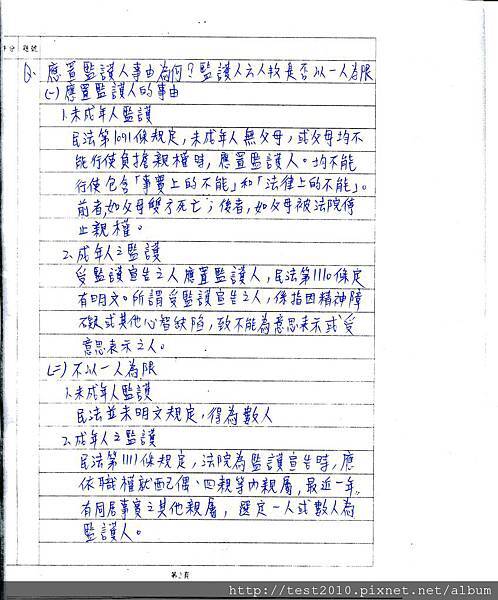 評分 題號
Q. 應置監護人事由為何?監護人之人數是否以一人為限
(一)應置監護人的事由
1.未成年人監護
民法第1091條規定,未成年人無父母,或父母均不
能行使負擔親權時,應置監護人。均不能
行使包含「事實上的不能」和「法律上的不能」。
前者,如父母雙方死亡;後者,如父母被法院停
止親權。
2.成年人之監護
受監護宣告之人應置監護人,民法第1110條定
有明文。所謂受監護宣告之人,係指因精神障
礙或其他心智缺陷,致不能為意思表示或受
意思表示之人。
(二)不以一人為限
1.未成年人監護
民法並未明文規定,得為數人
2.成年人之監護
民法第1111條規定,法院為監護宣告時,應
依職權就配偶、四親等內親屬,最近一年
有同居事實之其他親屬,選定一人或數人為
監護人。
第2頁
http://test2010.pixnet.net/album